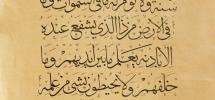 سنة ولا نوم له ما فى السموات وما
فى الارض من ذا الذى يشفع عنده
الا باذنه يعلم ما بين ايديهم وما
خلفهم ولا يحيطون بشىء من علمه